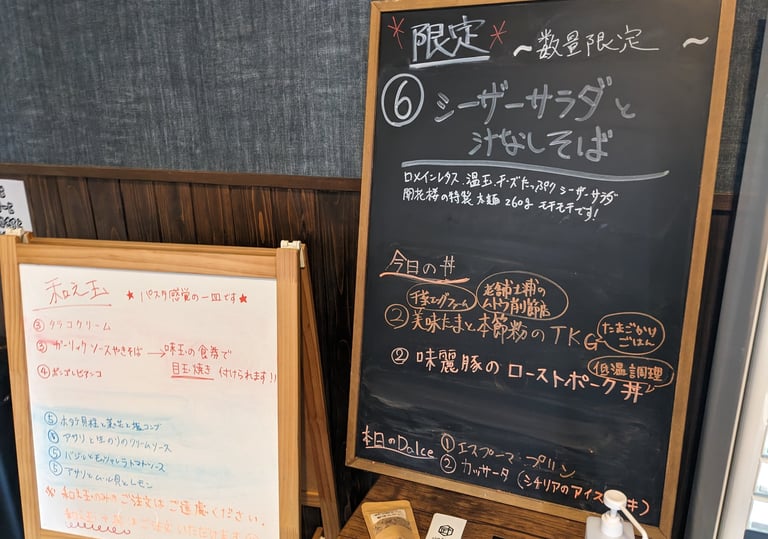 *限定* ~数量限定~
⑥ シーザーサラダと
汁なしそば
ロメインレタス、温玉、チーズたっぷり シーザーサラダ
開花楼の特製 太麺 260g モチモチです!
今日の丼
千葉エッグファーム
老舗土浦の
ムトウ削節店
② 美味たまと本節粉のTKG
たまごかけ
ごはん
② 味麗豚のローストポーク丼
低温調理
本日のDolce ① エスプーマ プリン
② カッサータ (シチリアのアイス
キ)
和え玉 ★パスタ感覚の一皿です★
③ タラコクリーム
③ ガーリックソースやきそば → 味玉の食券で
目玉焼き (付けられます!)
④ ボンゴレビアンコ
⑤ ホタテ貝柱と
コンブ
アサリと生のりのクリームソース
⑤ バジルとモッツァレラトマトソース
⑤ アサリとムール貝とレモン
※ 和え玉のみのご注文はご遠慮ください。